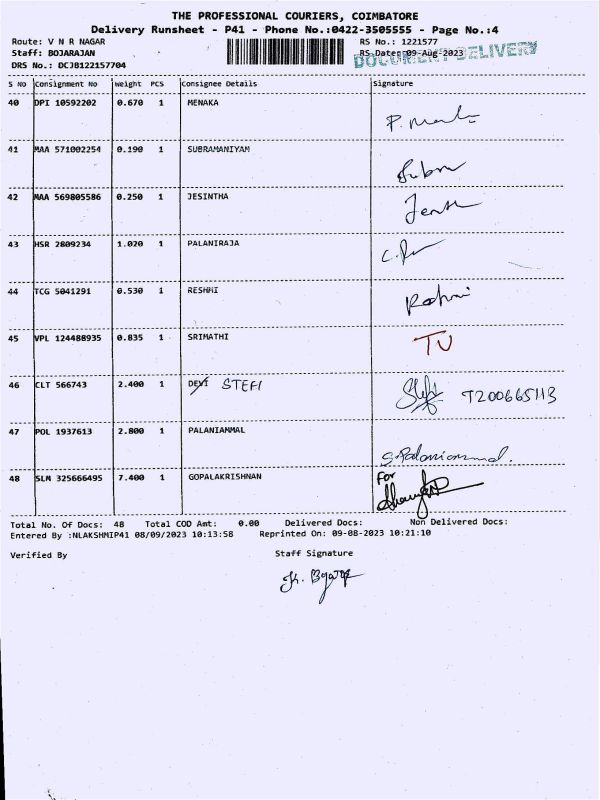 THE PROFESSIONAL COURIERS, COIMBATORE
Delivery Runsheet - P41 - Phone No.:0422-3505555 - Page No.:4
Route: V N R NAGAR RS No.: 1221577
Staff: BOJARAJAN RS Date: 09-Aug-2023 DOCUMENT DELIVERY
DRS No.: DCJB122157704
S NO Consignment No Weight PCS Consignee Details Signature
40 DPI 10592202 0.670 1 MENAKA
41 MAA 571002254 0.190 1 SUBRAMANIYAM
42 MAA 569805586 0.250 1 JESINTHA
43 HSR 2809234 1.020 1 PALANIRAJA
44 TCG 5041291 0.530 1 RESHMI
45 VPL 124488935 0.835 1 SRIMATHI TV
46 CLT 566743 2.400 1 DEVI STEFI T200665113
47 POL 1937613 2.800 1 PALANIAMMAL S.Palaniammal.
48 SLM 325666495 7.400 1 GOPALAKRISHNAN For
Total No. Of Docs: 48 Total COD Amt: 0.00 Delivered Docs: Non Delivered Docs:
Entered By :NLAKSHMIP41 08/09/2023 10:13:58 Reprinted On: 09-08-2023 10:21:10
Verified By Staff Signature